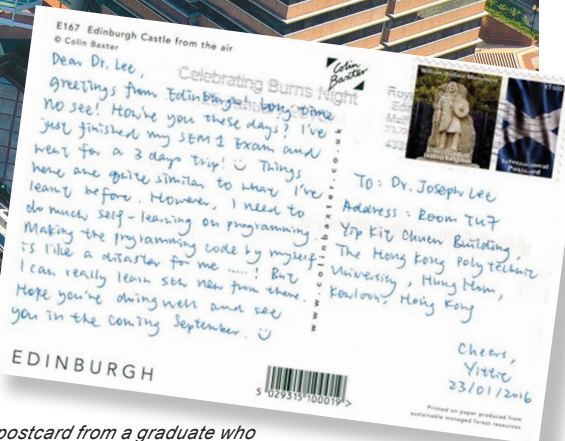 E167 Edinburgh Castle from the air
© Colin Baxter
Colin
Baxter
Celebrating Burns Night
Dear Dr. Lee,
Greetings from Edinburgh! Long time
no see! How're you these days? I've
just finished my SEM 1 Exam and
went for a 3 days trip! Things
here are quite similar to what I've
learnt before. However, I need to
do much self-learning on programming.
Making the programming code by myself
is like a disaster for me .....! But
I can really learn sth new from there.
Hope you're doing well and see
you in the coming September.
www.colinbaxter.co.uk
William Wallace
International
Postcard
To: Dr. Joseph Lee
Address: Room TU7
Yip Kit Chuen Building,
The Hong Kong Polytechnic
University, Hung Hom,
Kowloon, Hong Kong
Cheers,
Yittie
23/01/2016
EDINBURGH
5 029315 100019 >
Printed on paper produced from
sustainable managed forest resources
postcard from a graduate who